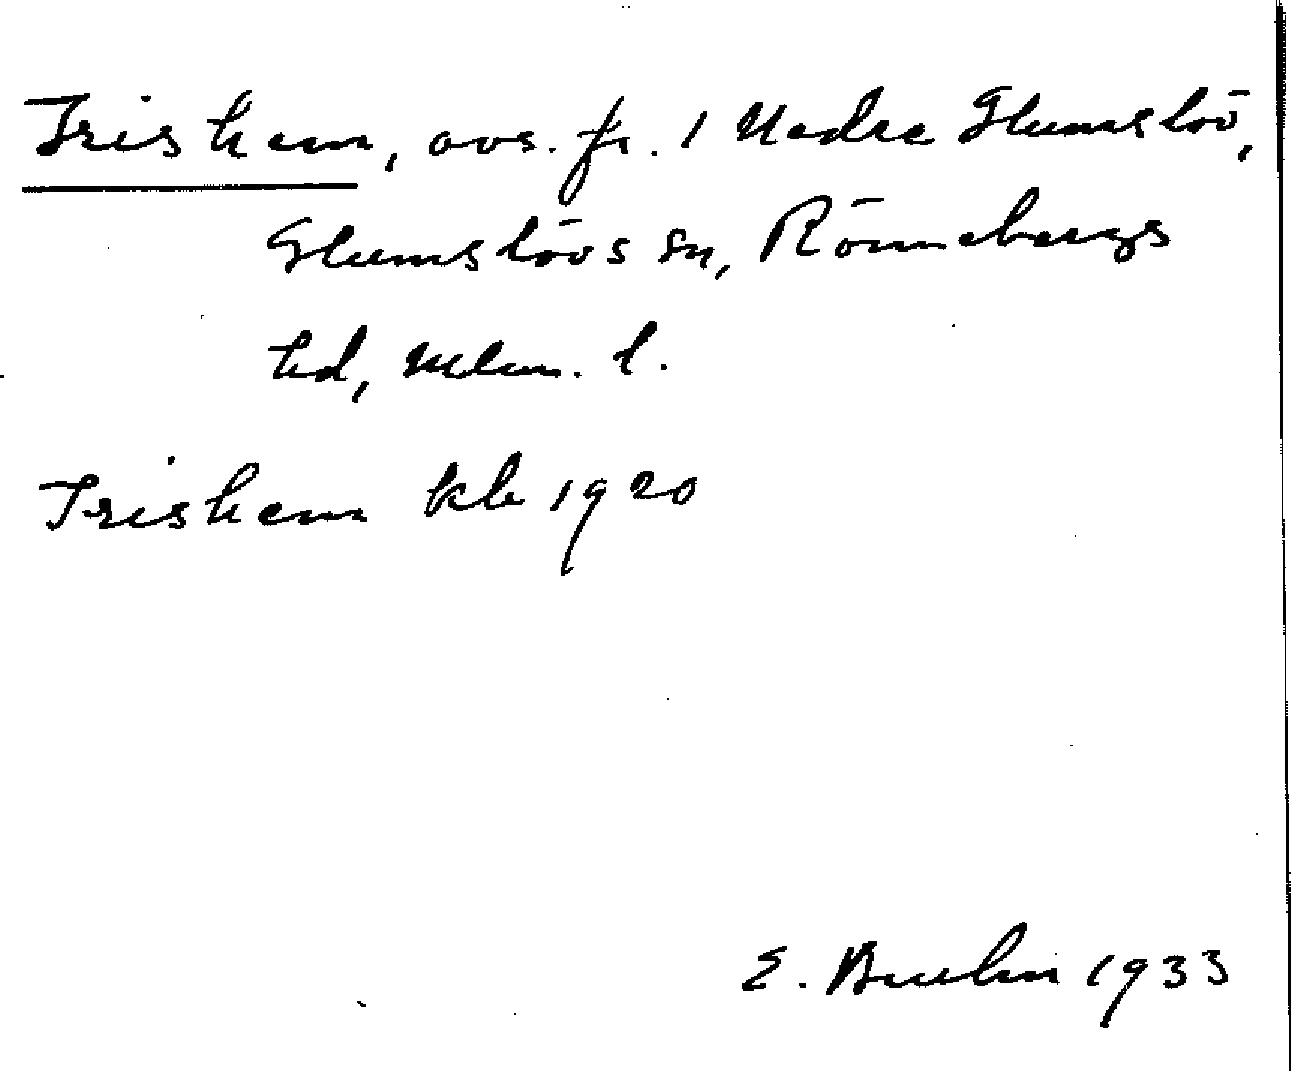 Irishem, avs. fr. 1 Nedre Glumslöv,
Glumslövs sn, Rönnebergs
hd, Mlm. l.
Irishem kb 1920
E. Bruhn 1933